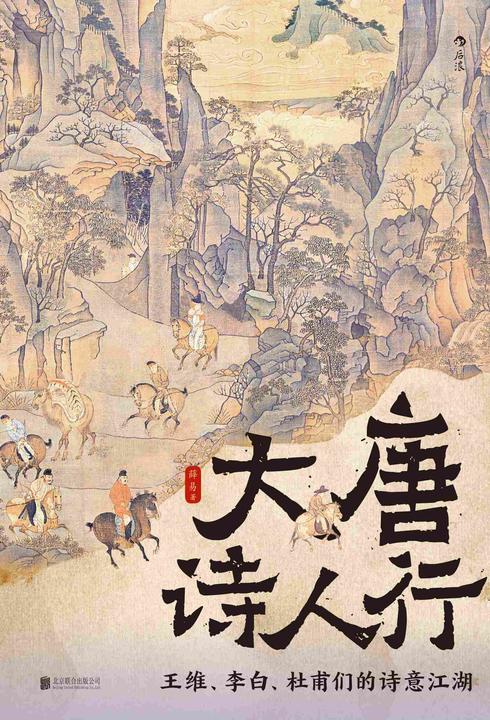 后浪
大唐
诗人行
薛易 著
王维、李白、杜甫们的诗意江湖
北京联合出版公司
Beijing United Publishing Co.,Ltd.